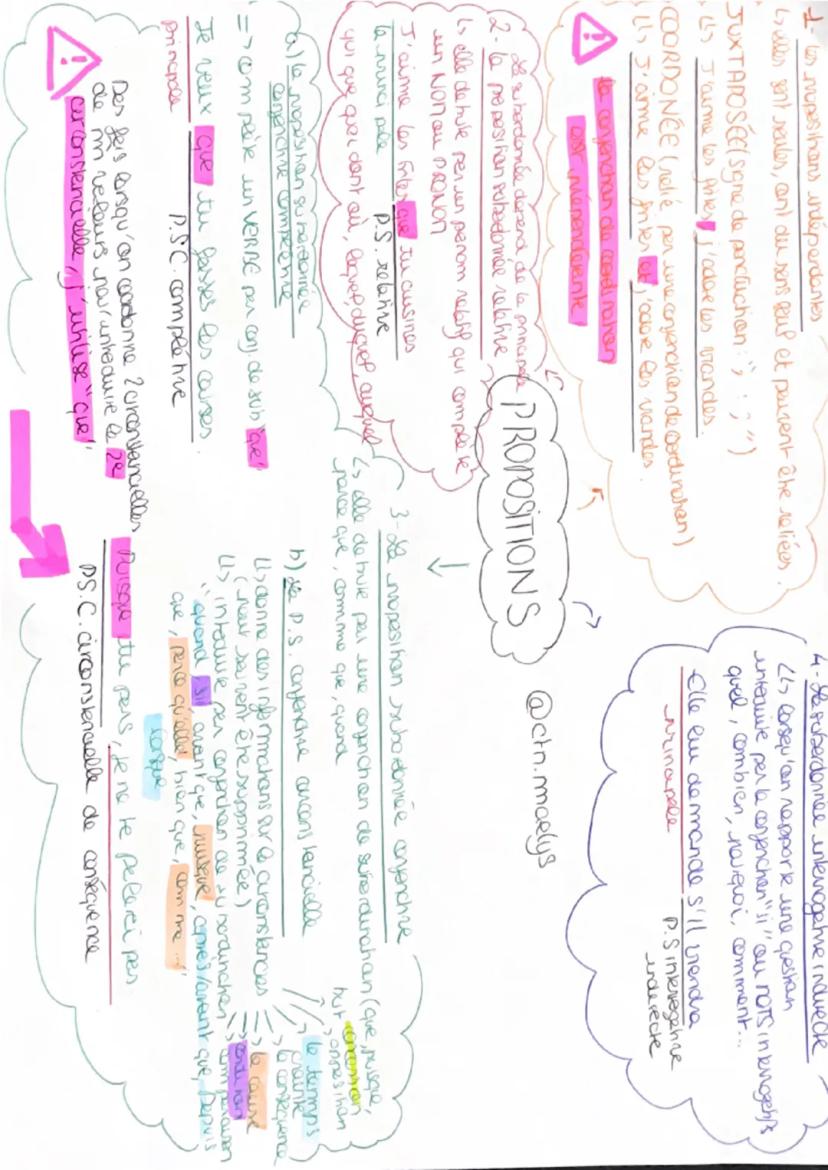 PROPOSITIONS
@ctn.maelys
1- Les propositions indépendantes
↳ elles sont seules, ont du sens seul et peuvent être reliées.
JUXTAPOSÉE (signe de ponctuation : ", : ; ")
↳ J'aime les frites, j'adore les viandes.
COORDONÉE (relié par une conjonction de coordination)
↳ J'aime les frites et j'adore les viandes.
la conjonction de coordination
est indépendante
La subordonnée dépend de la principale
2- La proposition subordonnée relative
↳ elle débute par un pronom relatif qui complète
un NOM ou PRONON
J'aime les frites que tu cuisines
principale P.S. relative
qui que quoi dont où, lequel, duquel, auquel
3- La proposition subordonnée conjonctive
↳ elle débute par une conjonction de subordination (que, puisque,
parce que, comme que, quand
a) la proposition subordonnée
conjonctive complétive
=> complète un VERBE par conj de sub "que"
Je veux que tu fasses les courses.
principale P.S.C. complétive
Des fois lorsqu'on coordonne 2 circonstancielles
pour introduire la 2e
circonstancielle, j'utilise "que"
b) La P.S conjonctive circonstancielle
↳ donne des informations sur la circonstances
(peuvent être supprimée)
↳ introduite par conjonction de subordination
"quand, si, avant que, puisque, après/avant que, Depuis
que, parce qu'elle, bien que, comme..."
lorsque
but opposition
le temps
crainte
la conséquence
la cause
condition
comparaison
Puisque tu pars, je ne te parlerai pas
P.S.C. circonstancielle de conséquence
4- La subordonnée interrogative indirecte
↳ lorsqu'on rapporte une question
introduite par la conjonction "si" ou MOTS interrogatifs
quel, combien, pourquoi, comment...
Elle lui demande s'il viendra
principale P.S interrogative
indirecte